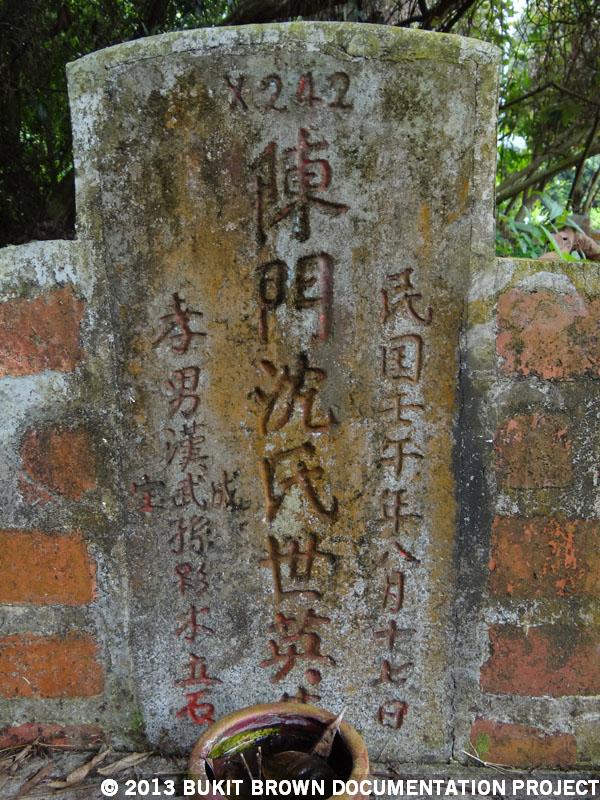 X242
民国壬午年八月十七日
陳門沈氏世英
成
孝男漢武孫水立石
宝
© 2013 BUKIT BROWN DOCUMENTATION PROJECT